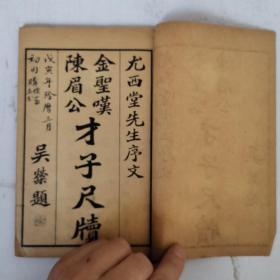 尤西堂先生序文
金聖嘆
陳眉公
才子尺牘
吳縈題
戊寅年陰曆三月